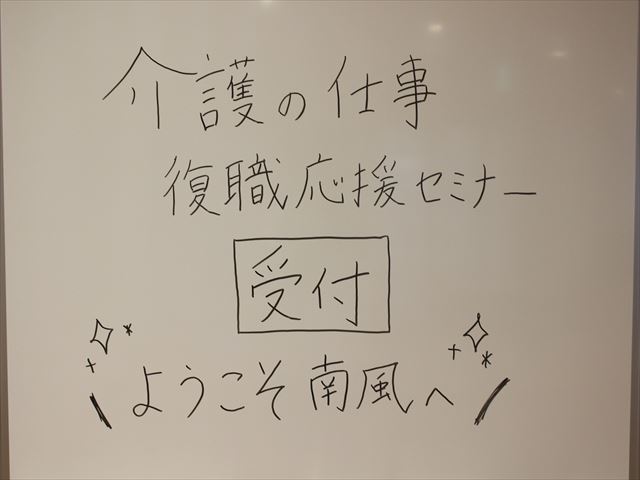 介護の仕事
復職応援セミナー
受付
ようこそ南風へ